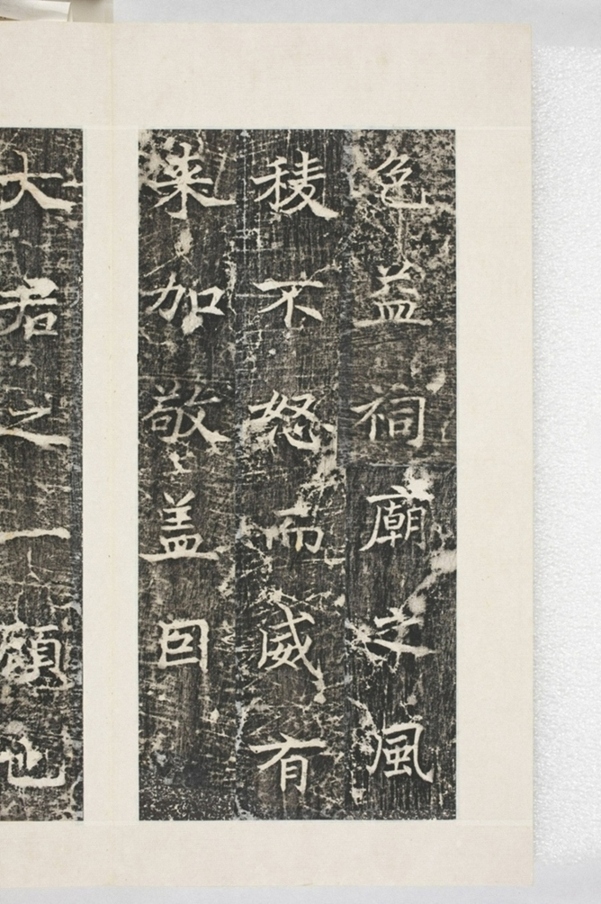 色益祠廟之風
稜不怒而威有
来加敬盖因
大君之一顧也